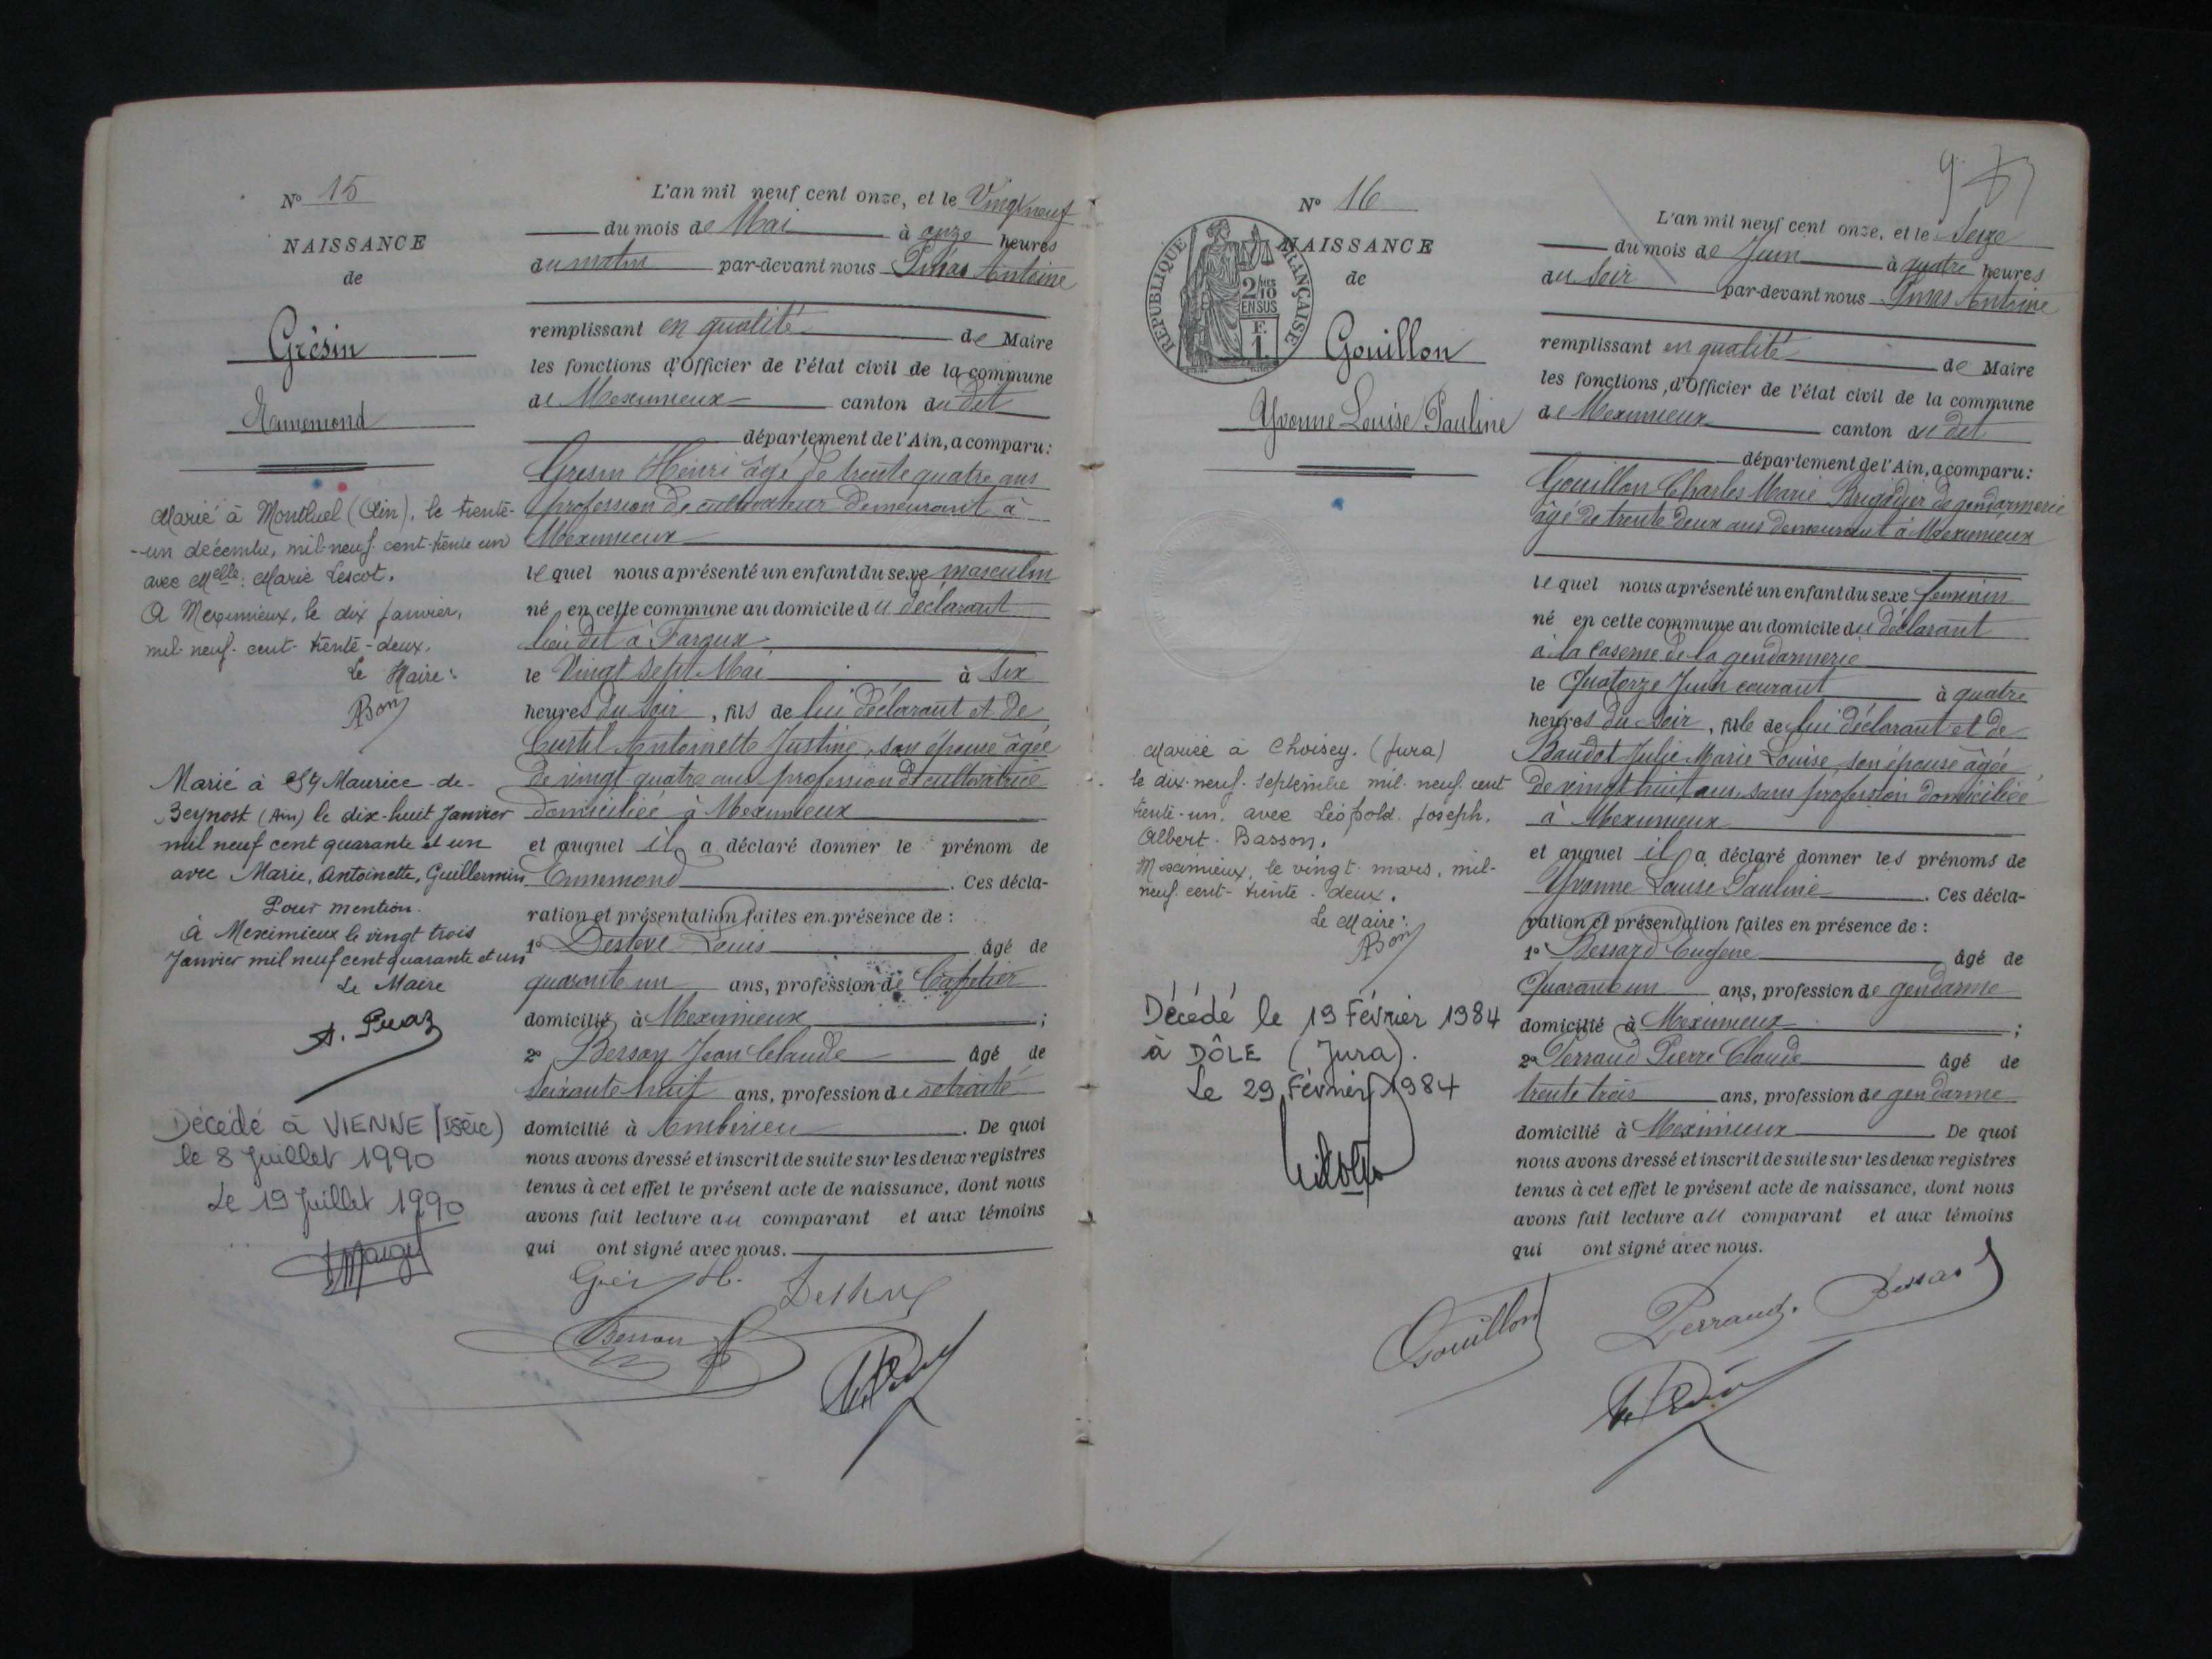 N° 15
NAISSANCE
de
Grésin
Ennemond
Marié à Montluel (Ain), le trente-
-un décembre, mil-neuf-cent-trente un
avec Melle: Marie Lescot.
A Meximieux, le dix janvier,
mil-neuf-cent-trente-deux.
Le Maire:
Bon
Marié à St Maurice-de-
Beynost (Ain) le dix-huit Janvier
mil neuf cent quarante et un
avec Marie, Antoinette, Guillermin
Pour mention.
à Meximieux le vingt trois
Janvier mil neuf cent quarante et un
Le Maire
Décédé à VIENNE (Isère)
le 8 Juillet 1990
Le 19 Juillet 1990
L'an mil neuf cent onze, et le Vingt neuf
du mois de Mai à onze heures
du matin par-devant nous Antoine
remplissant en qualité de Maire
les fonctions d'Officier de l'état civil de la commune
de Meximieux canton du dit
département de l'Ain, a comparu:
Grésin Henri âgé de trente quatre ans
profession de cultivateur demeurant à
Meximieux
lequel nous a présenté un enfant du sexe masculin
né en cette commune au domicile du déclarant
lieu dit à
le Vingt sept Mai à six
heures du soir, fils de lui déclarant et de
Curtil Antoinette Justine, son épouse âgée
de vingt quatre ans profession de cultivatrice
domiciliée à Meximieux
et auquel il a déclaré donner le prénom de
Ennemond. Ces décla-
ration et présentation faites en présence de :
1° Louis âgé de
quarante un ans, profession de Cafetier
domicilié à Meximieux ;
2° Besson Jean Claude âgé de
soixante huit ans, profession de retraité
domicilié à Ambérieu. De quoi
nous avons dressé et inscrit de suite sur les deux registres
tenus à cet effet le présent acte de naissance, dont nous
avons fait lecture au comparant et aux témoins
qui ont signé avec nous.
Besson
N° 16
NAISSANCE
de
REPUBLIQUE FRANÇAISE
2/10
EN SUS
F.
1.
Gouillon
Yvonne Louise Pauline
Mariée à Choisey. (Jura)
le dix-neuf-septembre mil-neuf-cent
trente-un. avec Léopold. Joseph.
Albert-Basson.
Meximieux, le vingt-mars, mil-
neuf-cent-trente-deux.
Le Maire:
Bon
Décédé le 19 Février 1984
à DÔLE (Jura).
Le 29 Février 1984
L'an mil neuf cent onze, et le Seize
du mois de Juin à quatre heures
du soir par-devant nous Antoine
remplissant en qualité de Maire
les fonctions d'Officier de l'état civil de la commune
de Meximieux canton du dit
département de l'Ain, a comparu:
Gouillon Charles Marie Brigadier de gendarmerie
âgé de trente deux ans demeurant à Meximieux
lequel nous a présenté un enfant du sexe féminin
né en cette commune au domicile du déclarant
à la Caserne de la gendarmerie
le Quatorze Juin courant à quatre
heures du soir, fille de lui déclarant et de
Baudot Julie Marie Louise, son épouse âgée
de vingt huit ans, sans profession domiciliée
à Meximieux
et auquel il a déclaré donner les prénoms de
Yvonne Louise Pauline. Ces décla-
ration et présentation faites en présence de :
1° Bessard Eugène âgé de
Quarante un ans, profession de gendarme
domicilié à Meximieux ;
2° Perraud Pierre Claude âgé de
trente trois ans, profession de gendarme
domicilié à Meximieux. De quoi
nous avons dressé et inscrit de suite sur les deux registres
tenus à cet effet le présent acte de naissance, dont nous
avons fait lecture au comparant et aux témoins
qui ont signé avec nous.
Gouillon Perraud. Bessard